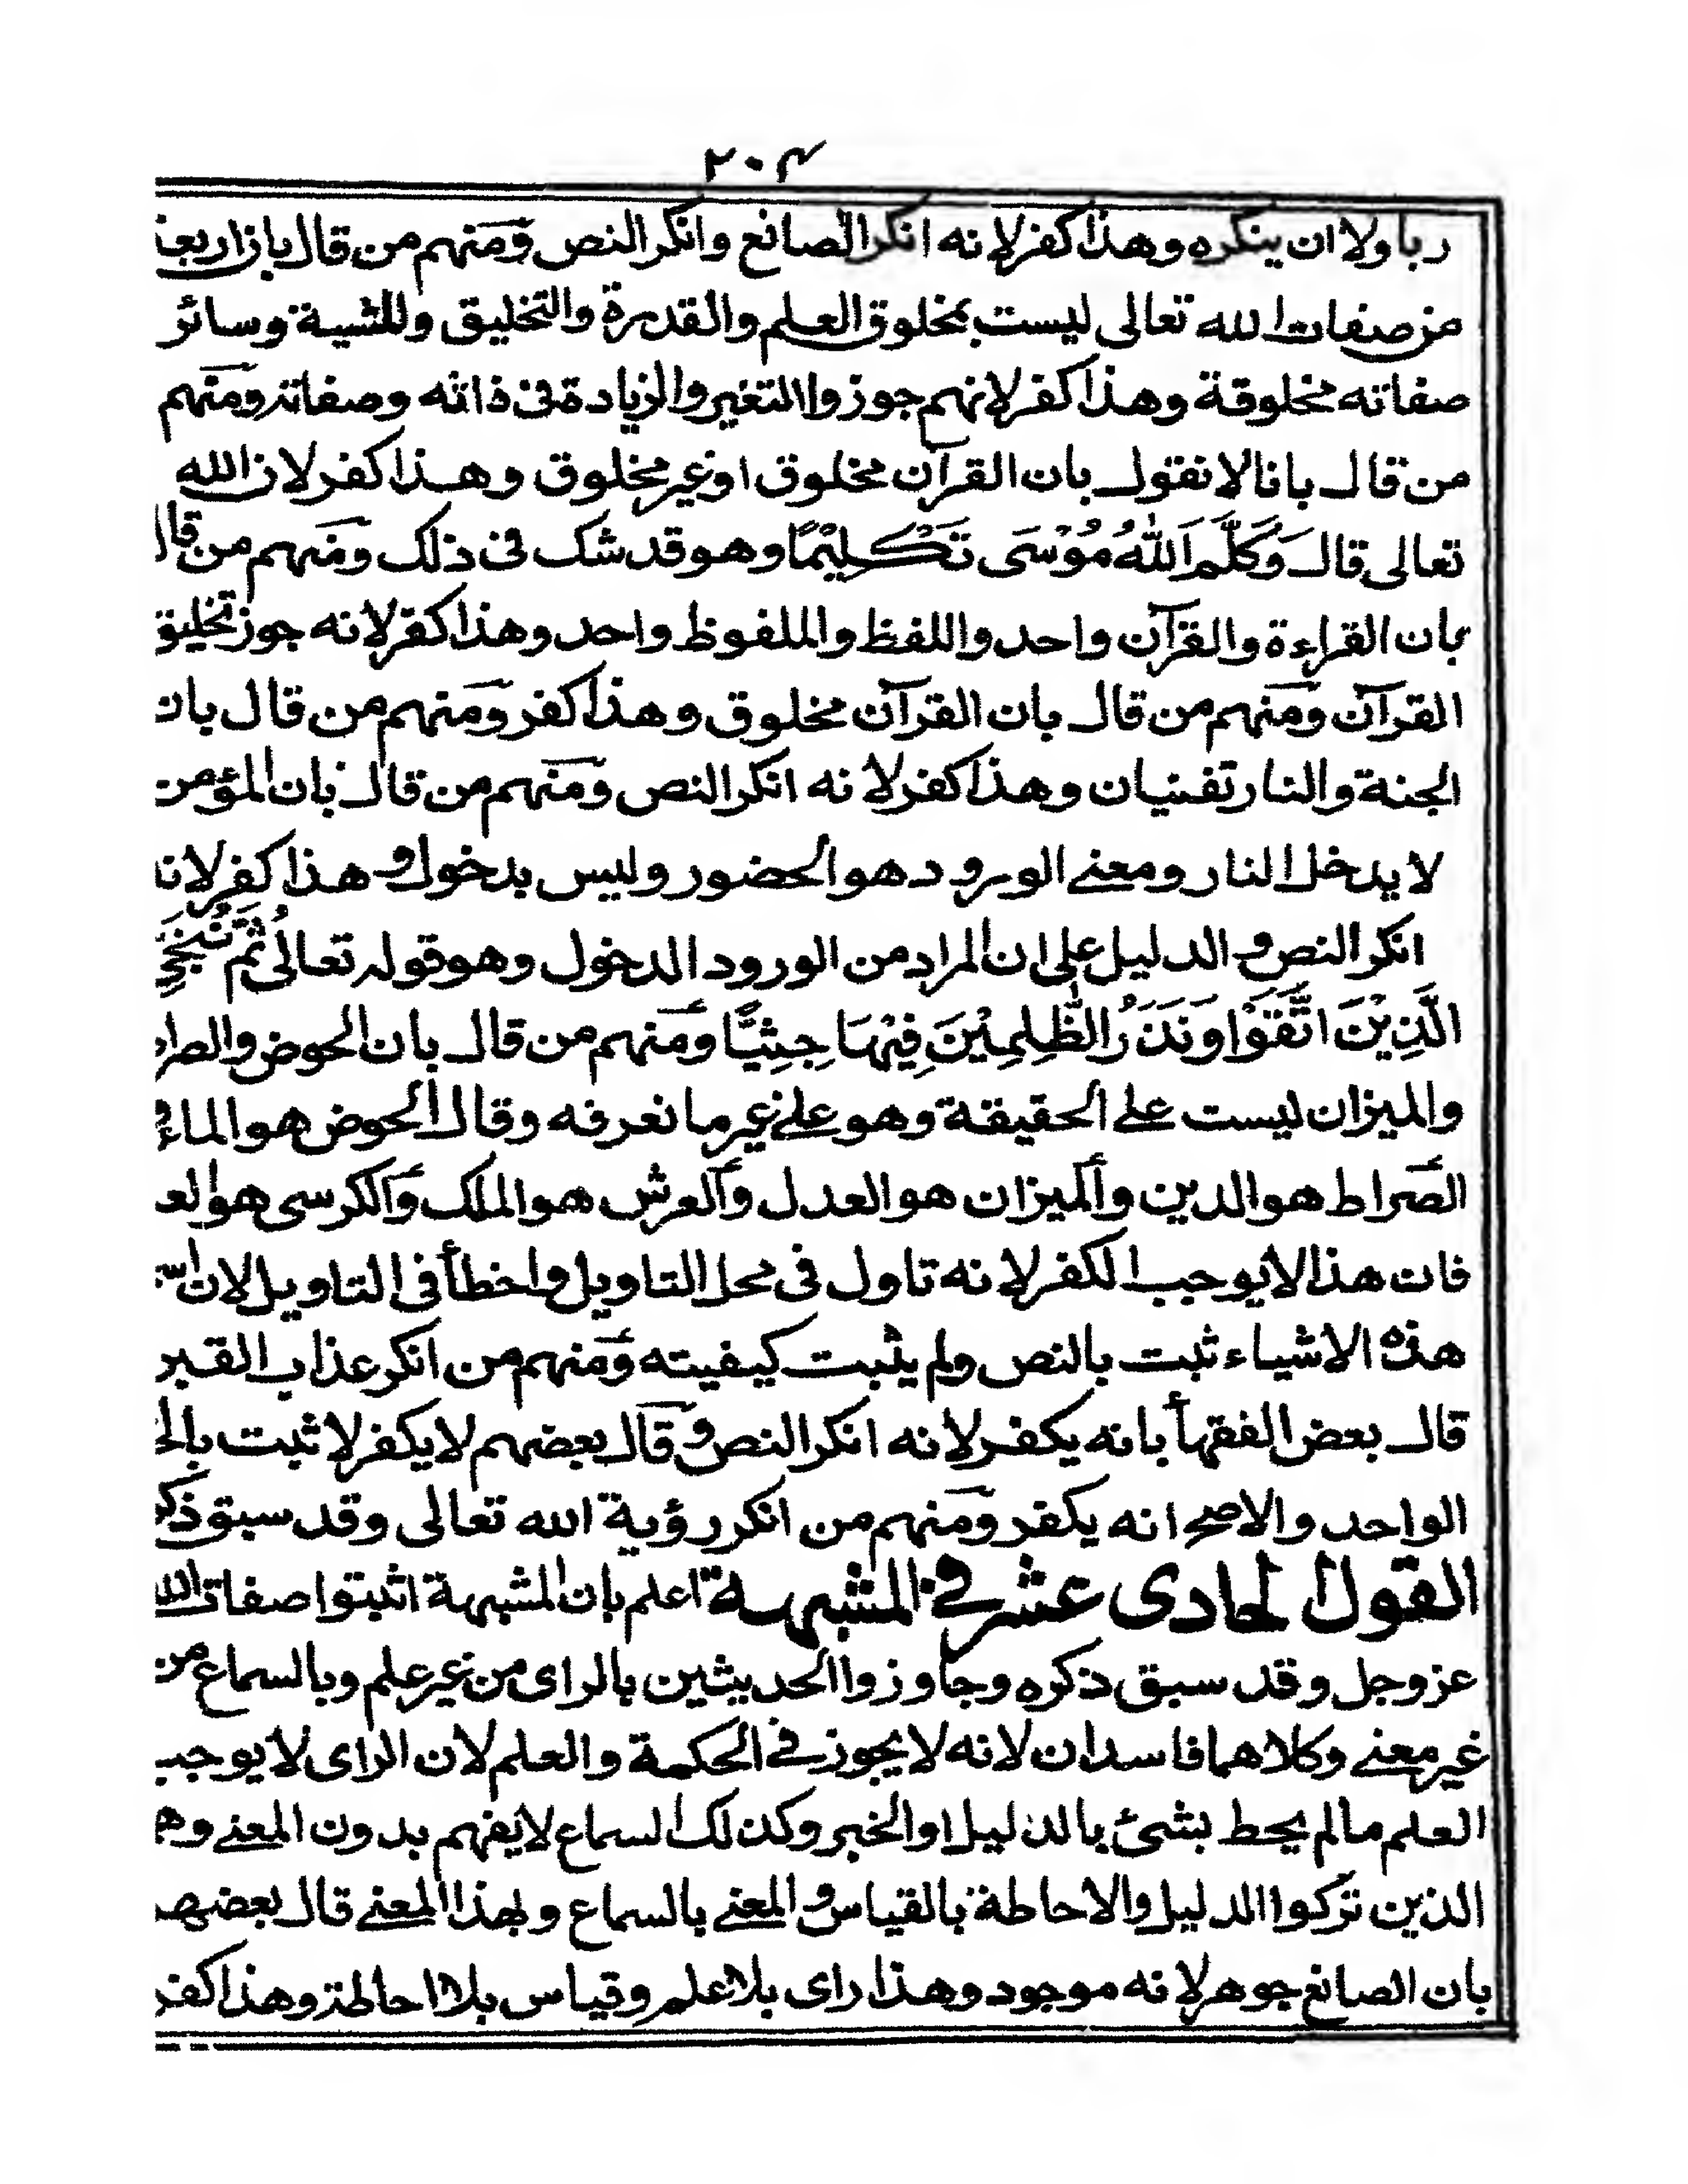 ٢٠٤
ربا ولا ان ينكره وهذا كفر لانه انكر الصانع وانكر النص ومنهم من قال بان اربعة
من صفات الله تعالى ليست بمخلوق العلم والقدرة والتخليق والمشية وسائر
صفاته مخلوقة وهذا كفر لانهم جوزوا التغير والزيادة فى ذاته وصفاته ومنهم
من قال بانا لا نقول بان القرآن مخلوق او غير مخلوق وهذا كفر لان الله
تعالى قال وَكَلَّمَ اللّٰهُ مُوْسَى تَكْلِيْمًا وهو قد شك فى ذلك ومنهم من قال
بان القراءة والقرآن واحد واللفظ والملفوظ واحد وهذا كفر لانه جوز تخليق
القرآن ومنهم من قال بان القرآن مخلوق وهذا كفر ومنهم من قال بان
الجنة والنار تفنيان وهذا كفر لانه انكر النص ومنهم من قال بان المؤمن
لا يدخل النار ومعنى الورود هو الحضور وليس بدخول وهذا كفر لانه
انكر النص والدليل على ان المراد من الورود الدخول وهو قوله تعالى ثُمَّ نُنَجِّي
الَّذِيْنَ اتَّقَوْا وَنَذَرُ الظّٰلِمِيْنَ فِيْهَا جِثِيًّا ومنهم من قال بان الحوض والصراط
والميزان ليست على الحقيقة وهو على غير ما نعرفه وقال الحوض هو الماء و
الصراط هو الدين والميزان هو العدل والعرش هو الملك والكرسى هو العلم
فان هذا لا يوجب الكفر لانه تاول فى محل التاويل واخطأ فى التاويل لان
هذه الاشياء ثبت بالنص ولم يثبت كيفيته ومنهم من انكر عذاب القبر
قال بعض الفقهأ بانه يكفر لانه انكر النص وقال بعضهم لا يكفر لا ثبت بالخبر
الواحد والاصح انه يكفر ومنهم من انكر رؤية الله تعالى وقد سبق ذكره
القول الحادى عشر فى المشبهة اعلم بان المشبهة اثبتوا صفات الله
عز وجل وقد سبق ذكره وجاوزوا الحديثين بالراى من غير علم وبالسماع من
غير معنى وكلاهما فاسدان لانه لا يجوز فى الحكمة والعلم لان الراى لا يوجب
العلم مالم يحط بشئ بالدليل او الخبر وكذلك السماع لا يفهم بدون المعنى وهم
الذين تركوا الدليل والاحاطة بالقياس والمعنى بالسماع وبهذا المعنى قال بعضهم
بان الصانع جوهر لانه موجود وهذا راى بلا علم وقياس بلا احاطة وهذا كفر